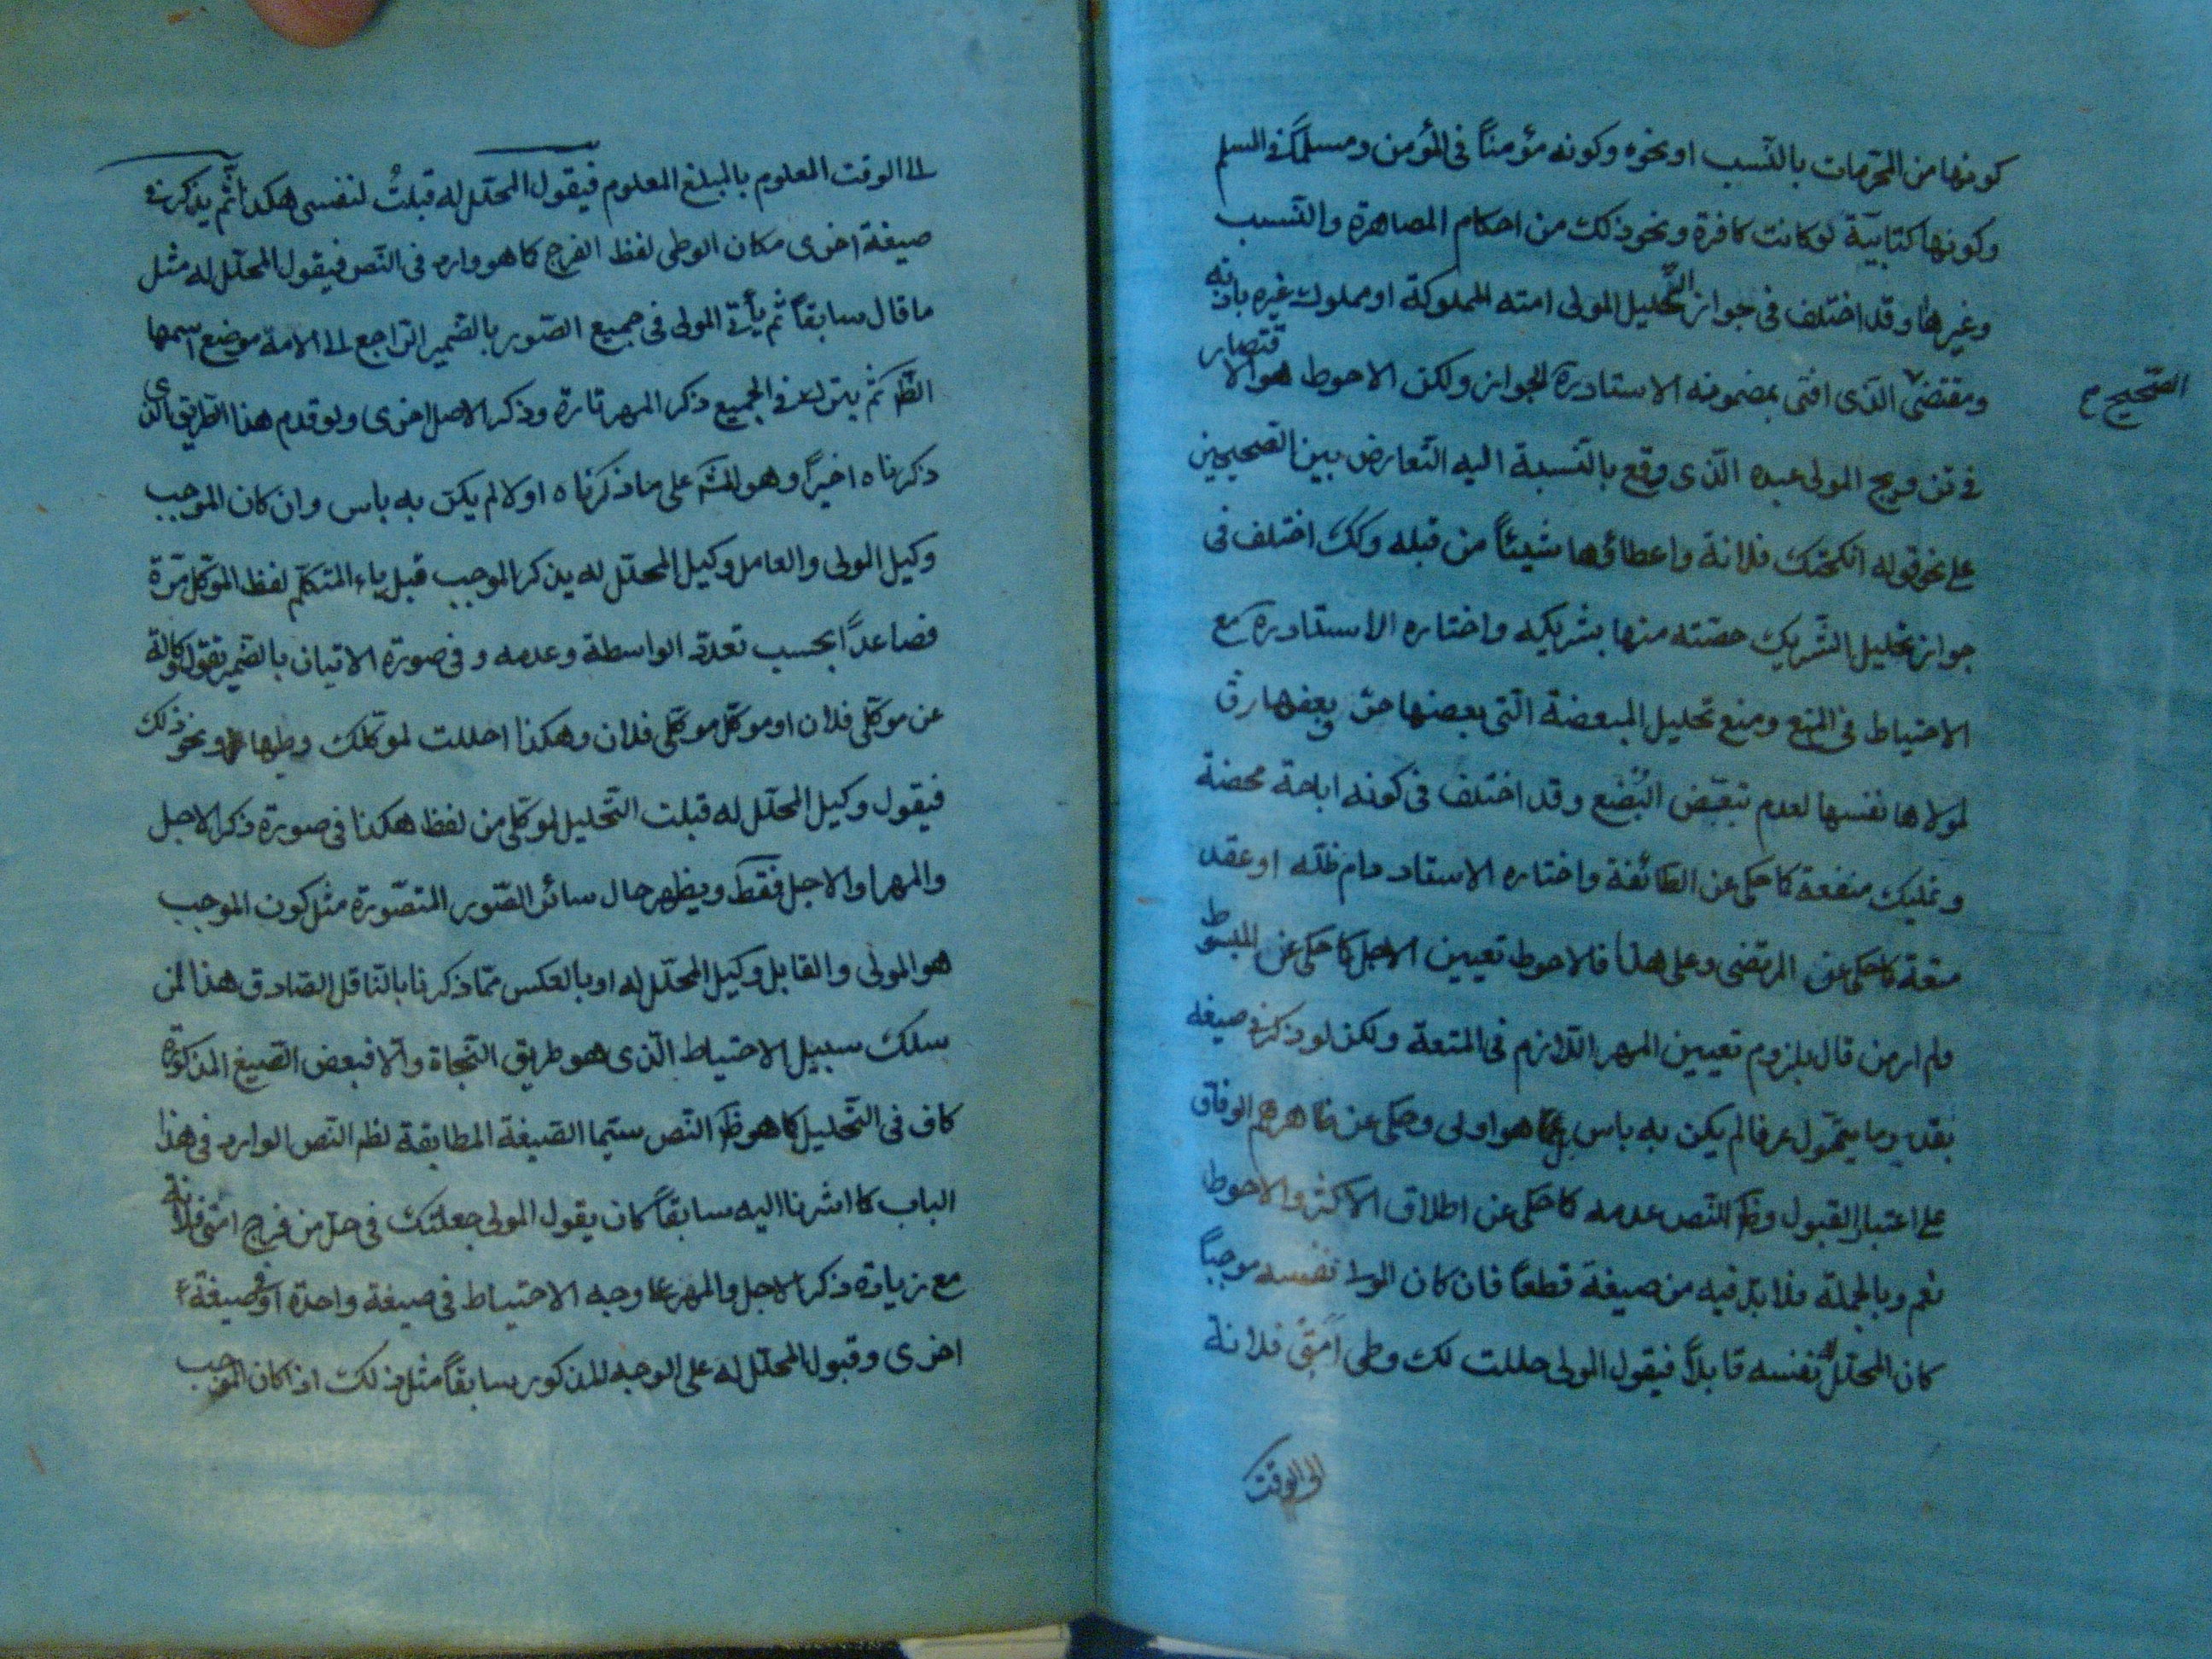 كونها من المحرمات بالنسب او نحوه وكونه مؤمناً فى المؤمن ومسلماً فى المسلم
وكونها كتابيّة لو كانت كافرة ونحو ذلك من احكام المصاهرة والنّسب
وغيرها وقد اختلف فى جواز تحليل المولى امته المملوكة او مملوك غيره باذنه
ومقتضى الّذى افتى بمضمونه الاستاد ره الجواز ولكن الاحوط هو الاقتصار
الصّحيح م
فى تزويج المولى عبده الّذى وقع بالنّسبة اليه التّعارض بين الصّحيحين
على نحو قوله انكحتك فلانة واعطاؤها شيئاً من قبله وكك اختلف فى
جواز تحليل الشّريك حصّته منها بشريكه واختاره الاستاد ره مع
الاحتياط فى المنع ومنع تحليل المبعضة الّتى بعضها حرّ وبعضها رقّ
لمولاها نفسها لعدم تبعّض البُضع وقد اختلف فى كونه اباحة محضة
وتمليك منفعة كما حكى عن الطّائفة واختاره الاستاد دام ظلّه او عقد
متعة كما حكى عن المرتضى وعلى هذا فالاحوط تعيين الاجل كما حكى عن المبسوط
ولم ار من قال بلزوم تعيين المهر اللّازم فى المتعة ولكن لو ذكر فى صيغة
بقدر ما يتموّل عرفا لم يكن به باس بل هو اولى وحكى عن ظاهرهم الوفاق
على اعتبار القبول وظ النّص عدمه كما حكى عن اطلاق الاكثر والاحوط
نعم وبالجملة فلا بدّ فيه من صيغة قطعاً فان كان المولى بنفسه موجباً
كان المحلّل له بنفسه قابلاً فيقول المولى حللت لك وطى اَمَتى فلانة
الى الوقت
الى الوقت المعلوم بالمبلغ المعلوم فيقول المحلّل له قبلتُ لنفسى هكذا ثم يذكر فى
صيغة اخرى مكان الوطى لفظ الفرج كما هو وارد فى النّص فيقول المحلّل له مثل
ما قال سابقاً ثم يأتى المولى فى جميع الصّور بالضّمير الرّاجع الى الامة موضع اسمها
الظّ ثم يترك فى الجميع ذكر المهر تارة وذكر الاجل اخرى ولو قدم هذا الطّريق الّذى
ذكرناه اخيراً وهو على ما ذكرناه اولا لم يكن به باس وان كان الموجب
وكيل المولى والعامل وكيل المحلّل له يذكر الموجب قبل ياء المتكلّم لفظ الموكل مرّة
فصاعداً بحسب تعدّد الواسطة وعدمه وفى صورة الاتيان بالضّمير يقول وكالة
عن موكّلى فلان او موكّل موكّلى فلان وهكذا احللت لموكّلك وطيها ونحو ذلك
فيقول وكيل المحلّل له قبلت التّحليل لموكّلى من لفظ هكذا فى صورة ذكر الاجل
والمهر او الاجل فقط ويظهر حال سائر الصّور المتصّورة مثل كون الموجب
هو المولى والقابل وكيل المحلّل له او بالعكس ممّا ذكرنا بالنّاقل الصّادق هذا لمن
سلك سبيل الاحتياط الّذى هو طريق النّجاة والّا فبعض الصّيغ المذكورة
كاف فى التّحليل كما هو ظ النّص سيّما الصّيغة المطابقة لظ النّص الوارد فى هذا
الباب كما اشرنا اليه سابقاً كان يقول المولى جعلتك فى حلّ من فرج امتى فلانة
مع زيادة ذكر الاجل والمهر على وجه الاحتياط فى صيغة واحدة او فى صيغة
اخرى وقبول المحلّل له على الوجه المذكور سابقاً مثل ذلك اذا كان الموجب